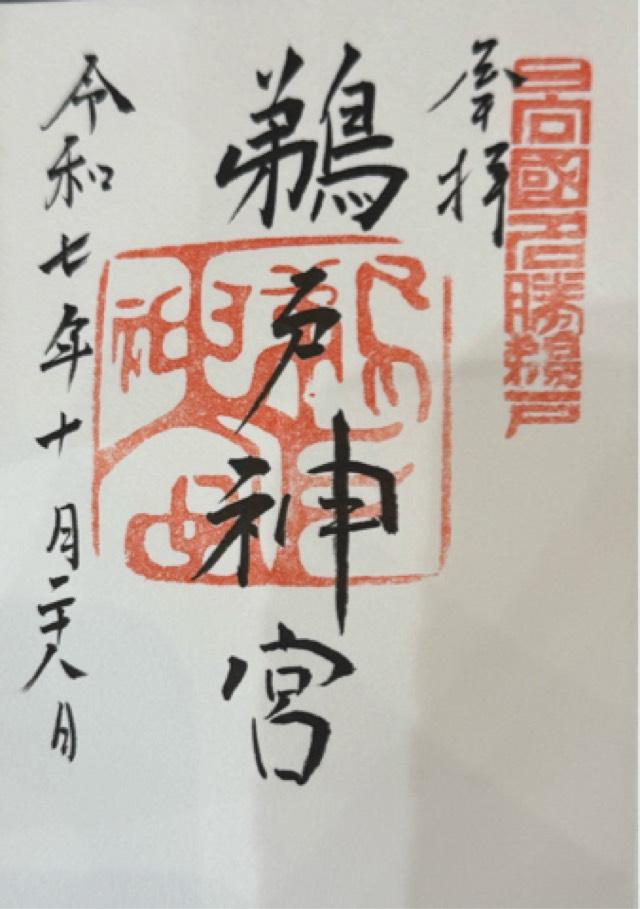 奉拝
日向國名勝鵜戸
鵜戸神宮
令和七年十月二十八日